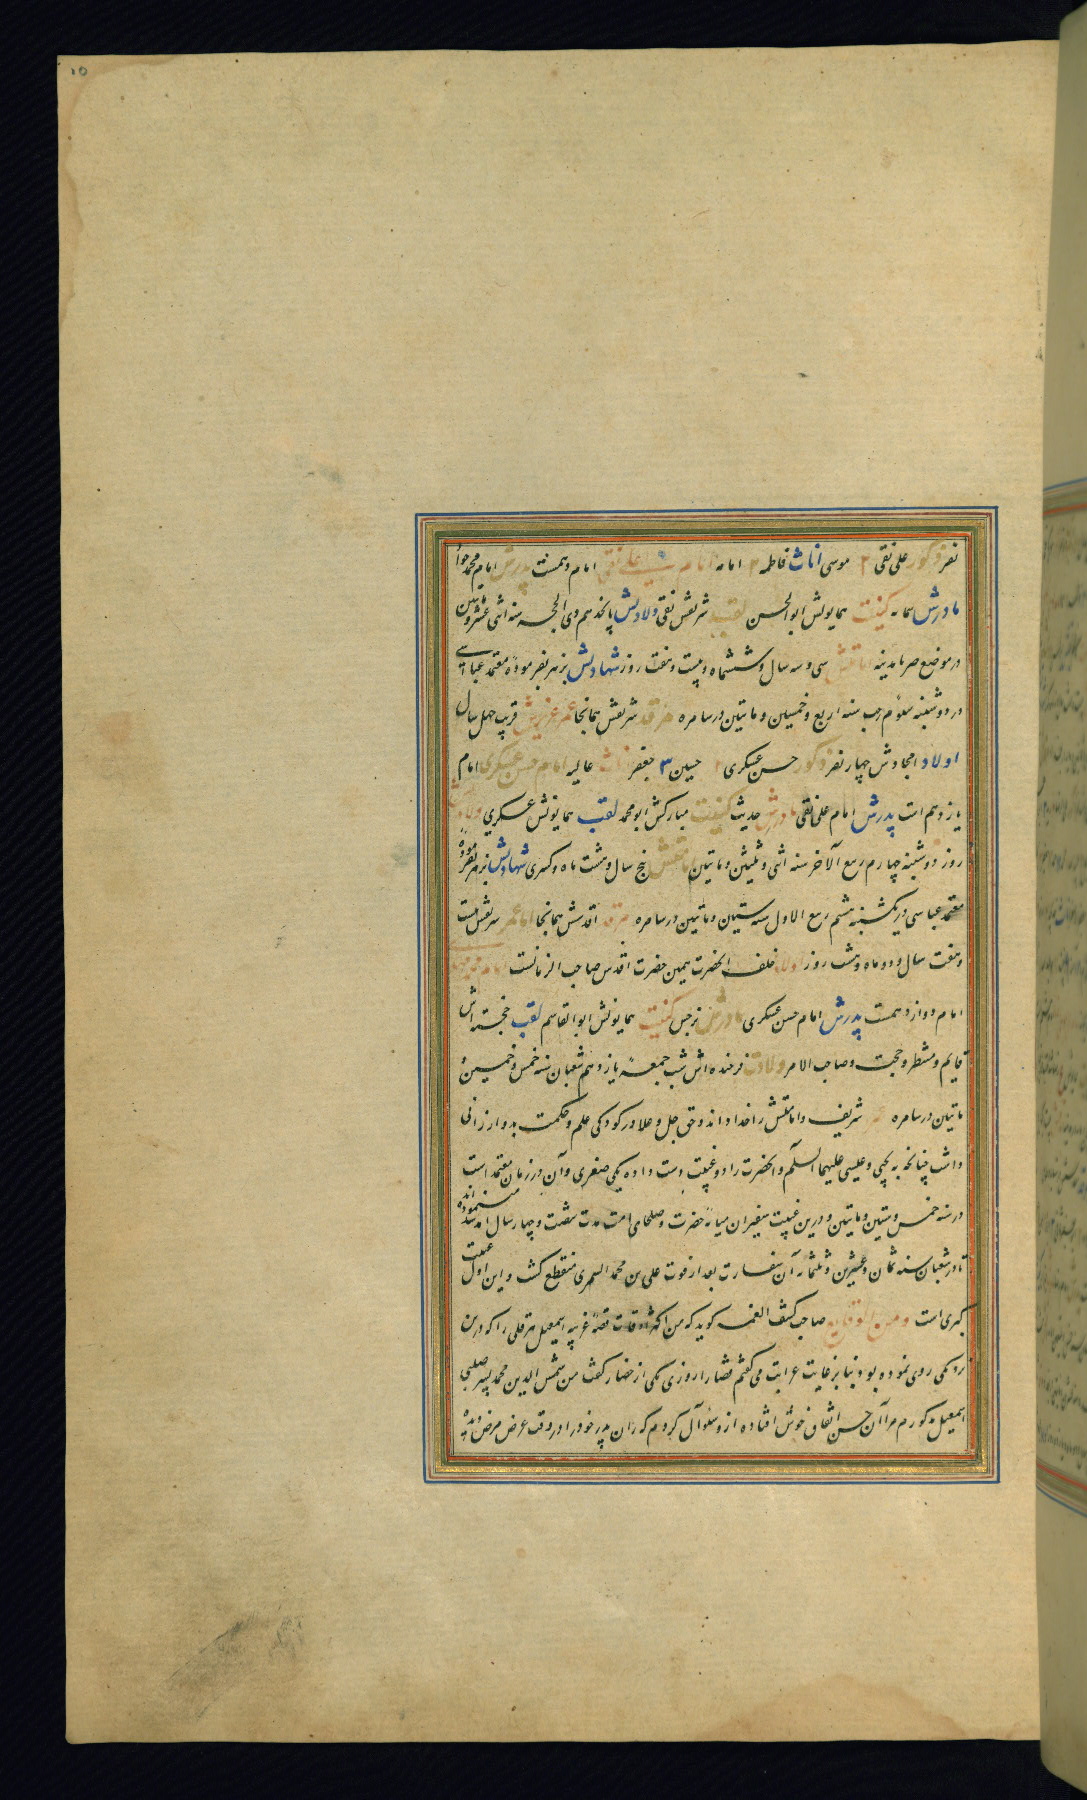 ۱۵
نفر ذکور علی نقی ۲ موسی اناث فاطمه ۲ امامه امام علی نقی امام دهمست پدرش امام محمد جواد
مادرش سمانه کنیت همایونش ابوالحسن لقب شریفش نقی ولادتش پانزدهم ذی الحجه سنه اثنی عشر و مأتین
در موضع صریا مدینه امامتش سی و سه سال و ششماه و بیست و هفت روز شهادتش بزهر بفرموده معتمد عباسی
در دوشنبه سوم رجب سنه اربع و خمسین و مأتین در سامره مرقد شریفش همانجا عمر عزیزش قریب چهل سال
اولاد امجادش چهار نفر ذکور حسن عسکری ۲ حسین ۳ جعفر اناث عالیه امام حسن عسکری امام
یازدهم است پدرش امام علی نقی مادرش حدیث کنیت مبارکش ابو محمد لقب همایونش عسکری ولادتش
روز دوشنبه چهارم ربیع الآخر سنه اثنی و ثلثین و مأتین امامتش پنج سال و هشت ماه و کسری شهادتش بزهر بفرموده
معتمد عباسی در یکشنبه هشتم ربیع الاول سنه ستین و مأتین در سامره مرقد اقدسش همانجا عمر شریفش بیست
و هفت سال و دو ماه و هشت روز اولاد خلف آنحضرت همین حضرت اقدس صاحب الزمانست
امام دوازدهمست پدرش امام حسن عسکری مادرش نرجس کنیت همایونش ابوالقاسم لقب خجسته اش
قایم و منتظر و حجت و صاحب الامر ولادت فرخنده اش شب جمعه یازدهم شعبان سنه خمس و خمسین و
مأتین در سامره شریف و امامتش را خدا داند و حق جل و علا در کودکی علم و حکمت بدو ارزانی
داشت چنانچه به یحیی و عیسی علیهما السلام و آنحضرت را دو غیبت دست داده یکی صغری و آن در زمان معتمد است
در سنه خمس و ستین و مأتین و درین غیبت سفیران میانه حضرت و صلحای امت مدت شصت و چهار سال آمد شد مینموده اند
تا در شعبان سنه ثمان و عشرین و ثلثمائه آن سفارت بعد از فوت علی بن محمد السمری منقطع گشت و این اول غیبت
کبری است و من الوقایع صاحب کشف الغمه گوید که من اکثر اوقات قصه غریبه اسمعیل هرقلی را که درین
نزدیکی روی نموده بود بنا بر غایت غرابت می گفتم قضا را روزی یکی از حضار گفت من شمس الدین محمد پسر صلبی
اسمعیل مذکورم مرا آن حسن اتفاق خوش افتاده ازو سؤال کردم که ران پدر خود را در وقت عرض مرض دیده